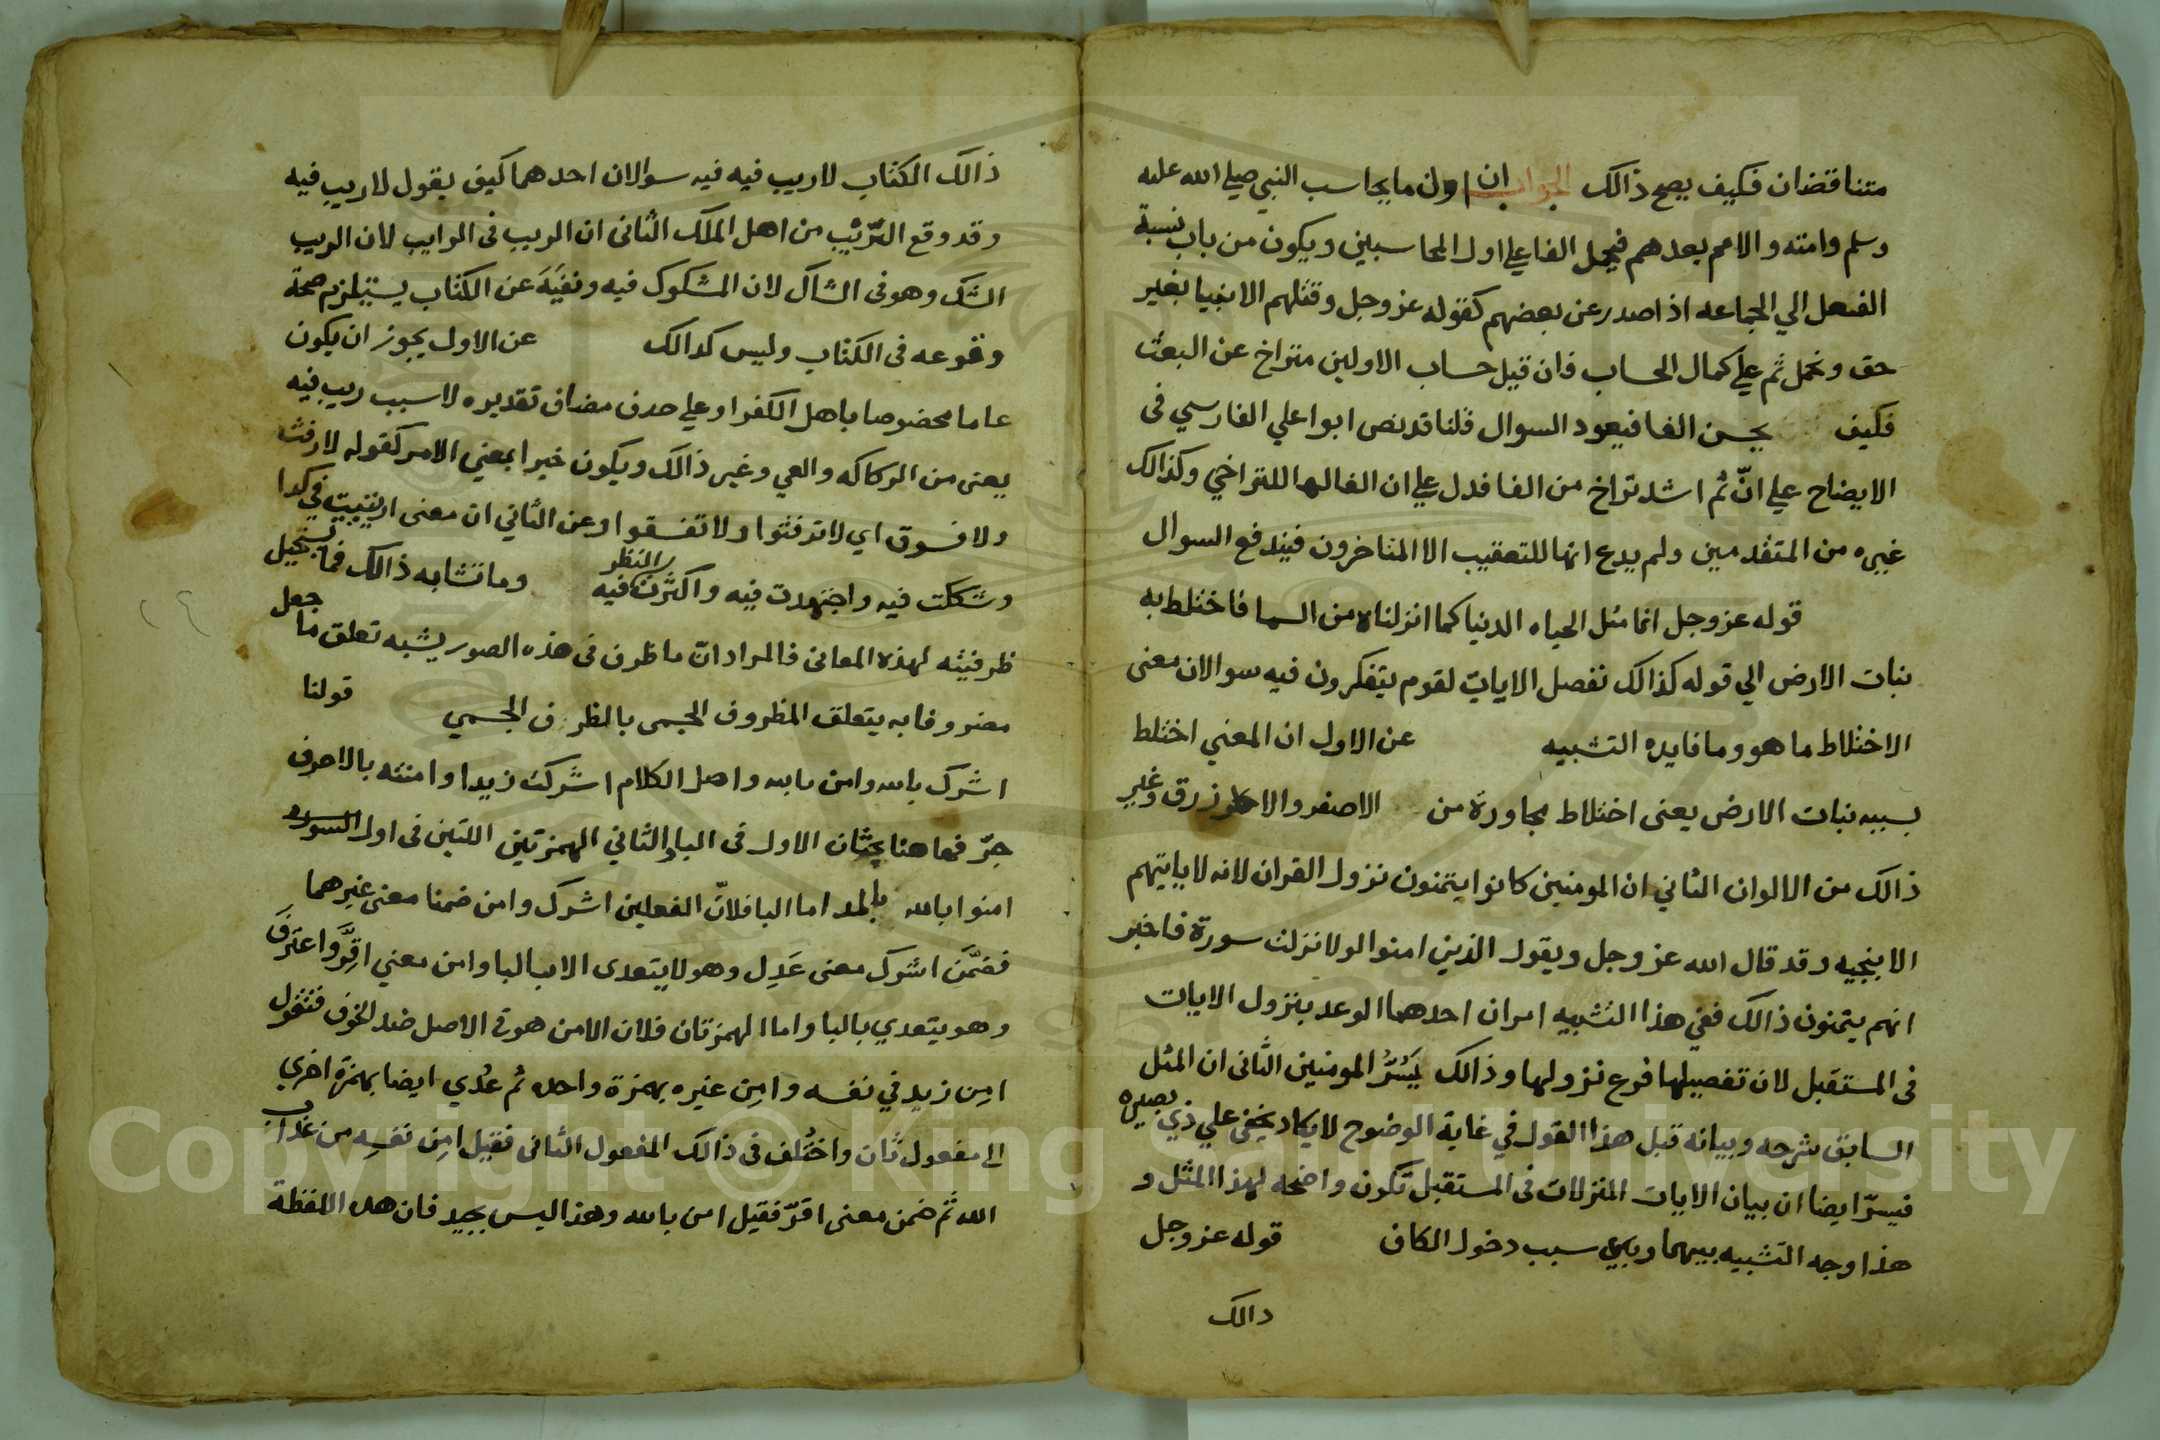 متناقضان فكيف يصح ذالك الجواب ان اول ما يحاسب النبي صلي الله عليه
وسلم وامته والامم بعدهم فيحمل الفا علي اول المحاسبين ويكون من باب نسبة
الفعل الي الجماعه اذا صدر عن بعضهم كقوله عز وجل وقتلهم الانبيا بغير
حق وتحمل ثم علي كمال الحساب فان قيل حساب الاولين متراخ عن البعث
فكيف يحسن الفا فيعود السوال قلنا قد نص ابوا علي الفارسي في
الايضاح علي انّ ثم اشد تراخ من الفا فدل علي ان الفا لها التراخي وكذالك
غيره من المتقدمين ولم يدع انها للتعقيب الا المتاخرون فيندفع السوال
قوله عز وجل انما مثل الحياه الدنيا كما انزلناه من السما فاختلط به
نبات الارض الي قوله كذالك نفصل الايات لقوم يتفكرون فيه سوالان معنى
الاختلاط ما هو وما فايده التشبيه عن الاول ان المعني اختلط
بسببه نبات الارض يعنى اختلاط مجاورة من الاصفر والاحمر والازرق وغير
ذالك من الالوان الثاني ان المومنين كانوا يتمنون نزول القران لانه لا ياتيهم
الا بنجيه وقد قال الله عز وجل ويقول الذين امنوا لولا نزلت سورة فاخبر
انهم يتمنون ذالك ففي هذا التشبيه امران احدهما الوعد بنزول الايات
في المستقبل لان تفصيلها فرع نزولها وذالك يَسُرُّ المومنين الثاني ان المثل
السابق شرحه وبيانه قبل هذا القول في غاية الوضوح لا يكاد يخفى علي ذي بصيره
فيسرّ ايضا ان بيان الايات المنزلات في المستقبل تكون واضحه لهذا المثل و
هذا وجه التشبيه بينهما وبيان سبب دخول الكاف قوله عز وجل
دالك
ذالك الكتاب لا ريب فيه فيه سوالان احدهما كيف يقول لا ريب فيه
وقد وقع الرّيب من اهل الملك الثاني ان الريب في الرايب لان الريب
الشك وهو في الشاك لان المشكوك فيه ونفيه عن الكتاب يستلزم صحة
وقوعه في الكتاب وليس كدالك عن الاول يجوز ان يكون
عاما مخصوصا باهل الكفر او علي حدف مضاف تقديره لا سبب ريب فيه
يعنى من الركاكه والعي وغير ذالك ويكون خبرا بمعني الامر كقوله لا رفث
ولا فسوق اي لا ترفثوا ولا تفسقوا وعن الثاني ان معنى ارتبيت في كدا
وشككت فيه واجتهدت فيه واكثرت النظر فيه وما تشابه ذالك فما يستحيل
ظرفيته لهذه المعاني فالمراد انّ ما ظرف في هذه الصور يشبه تعلق ما جعل
مضروفا به يتعلق المظروف الجسمى بالظرف الجسمي قولنا
اشرك بالله وامن بالله واصل الكلام اشركت زيدا وامنته بالاحرف
جرّ فهاهنا بحثان الاول في البا والثاني الهمزتين اللتين في اول السوره
امنوا بالله بالمد اما البا فلانّ الفعلين اشرك وامن ضمنا معنى غيرهما
فضمّن اشرك معنى عَدِل وهو لا يتعدى الا بالبا وامن معني اقرَّ واعترف
وهو يتعدي بالبا واما الهمزتان فلان الامن هو في الاصل ضد الخوف فنقول
امِن زيد في نفسه وامِن غيره بهمزة واحده ثم عُدي ايضا بهمزة اخري
الي مفعول ثان واختُلف في ذالك المفعول الثاني فقيل امِن نفسِه من عذاب
الله ثم ضمن معنى اقرّ فقيل امن بالله وهذا ليس بجيد فان هده اللفظة
Copyright © King Saud University